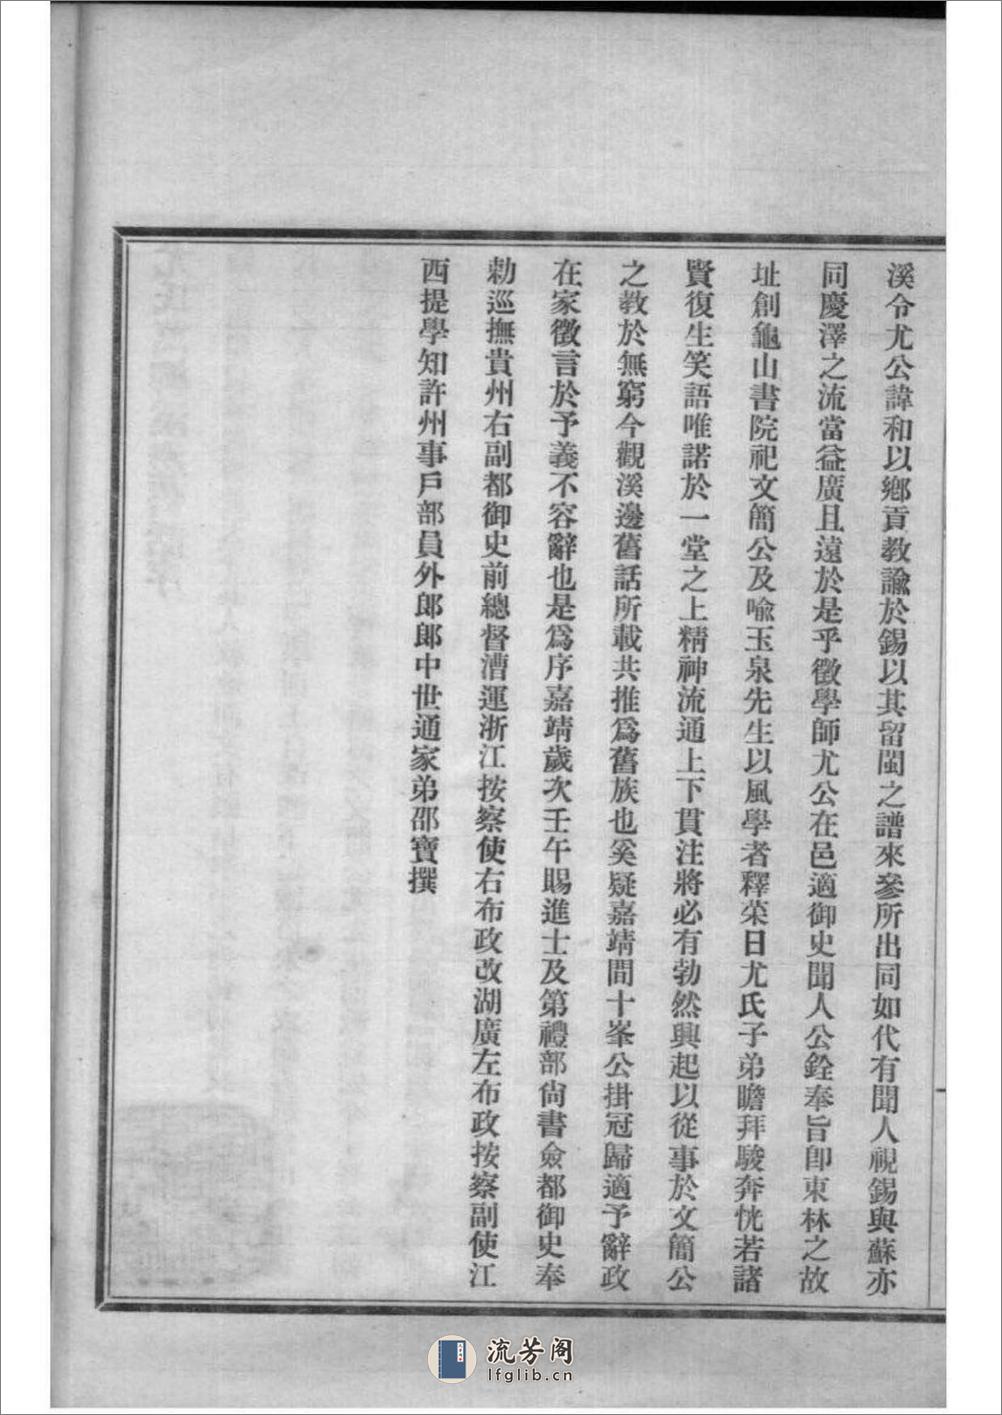 溪令尤公諱和以鄉貢教諭於錫以其留閩之譜來叅所出同如代有聞人視錫與蘇亦
同慶澤之流當益廣且遠於是乎徵學師尤公在邑適御史聞人公銓奉旨卽東林之故
址創龜山書院祀文簡公及喻玉泉先生以風學者釋菜日尤氏子弟瞻拜駿奔恍若諸
賢復生笑語唯諾於一堂之上精神流通上下貫注將必有勃然興起以從事於文簡公
之教於無窮今觀溪邊舊話所載共推爲舊族也奚疑嘉靖間十峯公掛冠歸適予辭政
在家徵言於予義不容辭也是爲序嘉靖歲次壬午賜進士及第禮部尙書僉都御史奉
勅巡撫貴州右副都御史前總督漕運浙江按察使右布政改湖廣左布政按察副使江
西提學知許州事戶部員外郎郎中世通家弟邵寶撰
流芳阁
lfglib.cn